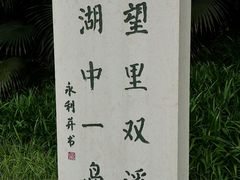 望里双溪
湖中一岛
永利并书